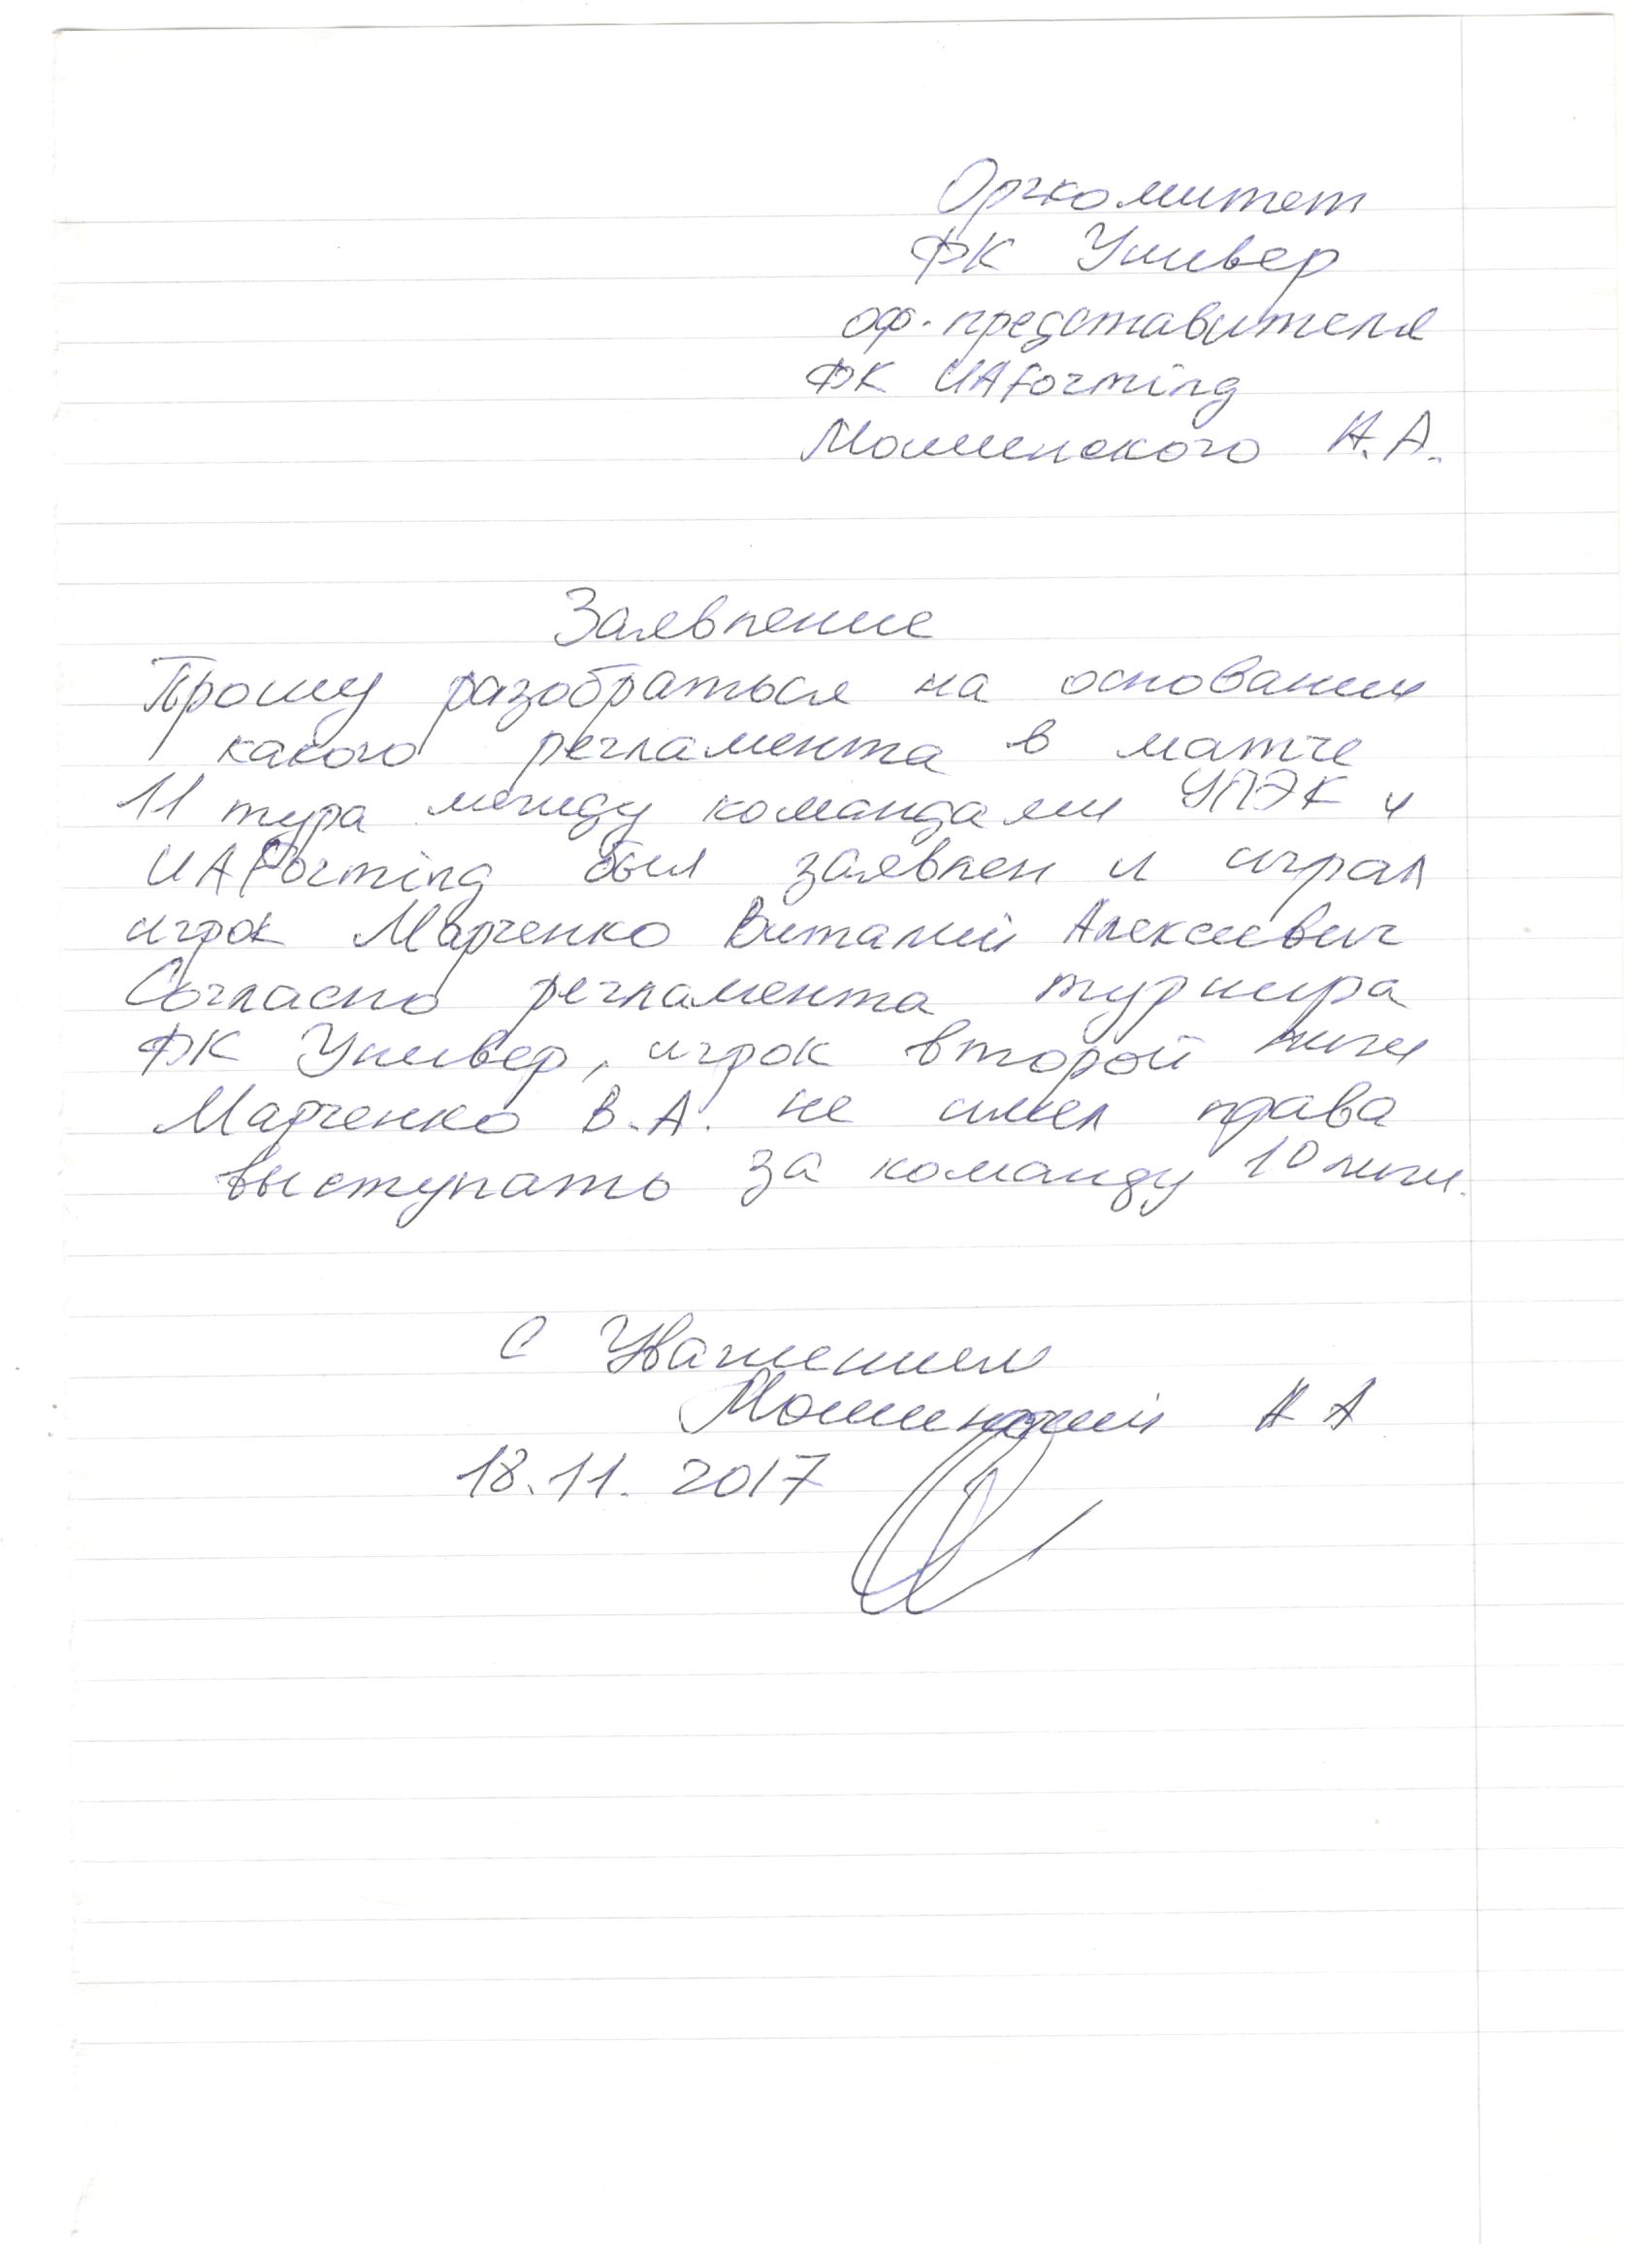 Оргкомитет
ФК Универ
оф. представителя
ФК UAForming
Мошенского А.А.
Заявление
Прошу разобраться на основании
какого регламента в матче
11 тура между командами УПЭК и
UAForming был заявлен и играл
игрок Марченко Виталий Алексеевич
Согласно регламента турнира
ФК Универ, игрок второй лиги
Марченко В.А. не имел права
выступать за команду 10 лиги.
С Уважением
Мошенский А А
18.11.2017